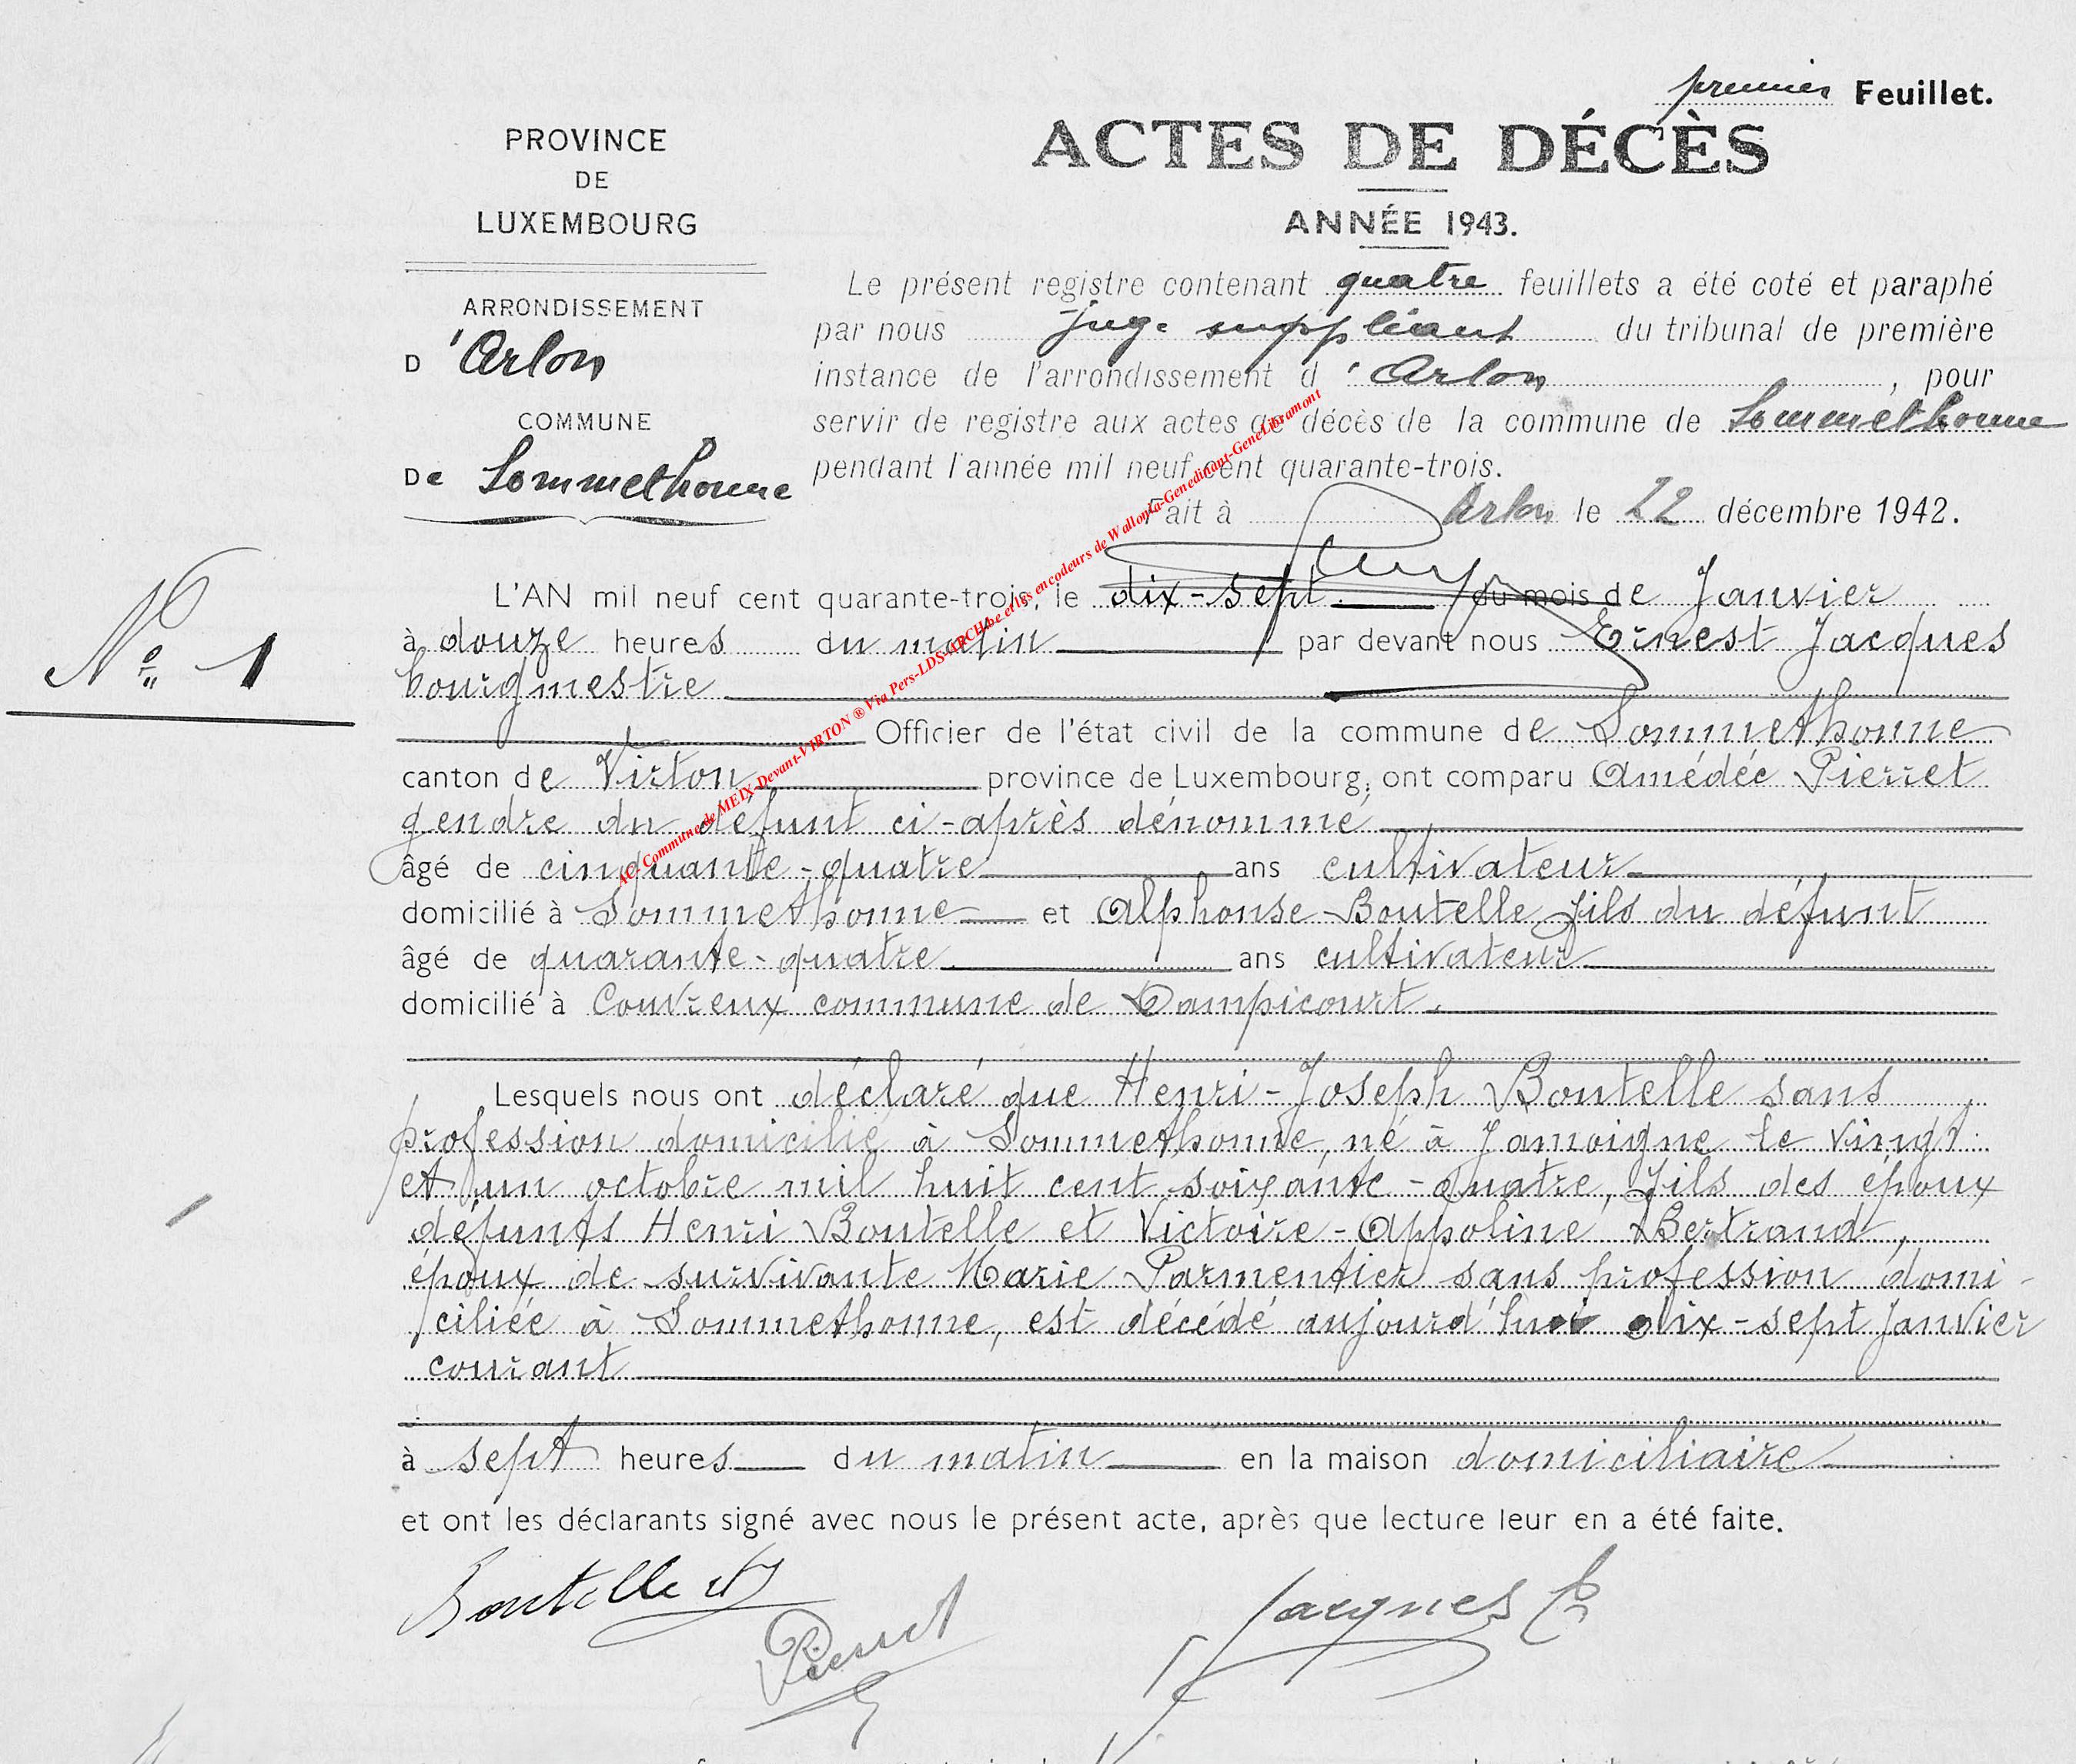 premier Feuillet.
PROVINCE
DE
LUXEMBOURG
ARRONDISSEMENT
D'Arlon
COMMUNE
De Sommethonne
ACTES DE DÉCÈS
ANNÉE 1943.
Le présent registre contenant quatre feuillets a été coté et paraphé
par nous juge suppléant du tribunal de première
instance de l'arrondissement d'Arlon, pour
servir de registre aux actes de décès de la commune de Sommethonne
pendant l'année mil neuf cent quarante-trois.
Fait à Arlon le 22 décembre 1942.
N° 1
L'AN mil neuf cent quarante-trois, le dix-sept du mois de Janvier
à douze heures du matin par devant nous Ernest Jacques
bourgmestre
Officier de l'état civil de la commune de Sommethonne
canton de Virton province de Luxembourg, ont comparu Amédée Pierret
gendre du défunt ci-après dénommé
âgé de cinquante-quatre ans cultivateur
domicilié à Sommethonne et Alphonse Boutelle fils du défunt
âgé de quarante-quatre ans cultivateur
domicilié à Couvreux commune de Dampicourt.
Lesquels nous ont déclaré que Henri-Joseph Boutelle sans
profession domicilié à Sommethonne, né à Jamoigne le vingt
et un octobre mil huit cent soixante-quatre, fils des époux
défunts Henri Boutelle et Victoire-Appoline Bertrand,
époux de survivante Marie Parmentier sans profession domi-
ciliée à Sommethonne, est décédé aujourd'hui dix-sept Janvier
courant
à sept heures du matin en la maison domiciliaire
et ont les déclarants signé avec nous le présent acte, après que lecture leur en a été faite.
Boutelle
Pierret
Jacques E
AC- Commune de MEIX-Devant-VIRTON ® Via Pers-LDS-ARCH.be et les encodeurs de Wallonia-Genedinant-GeneLibramont